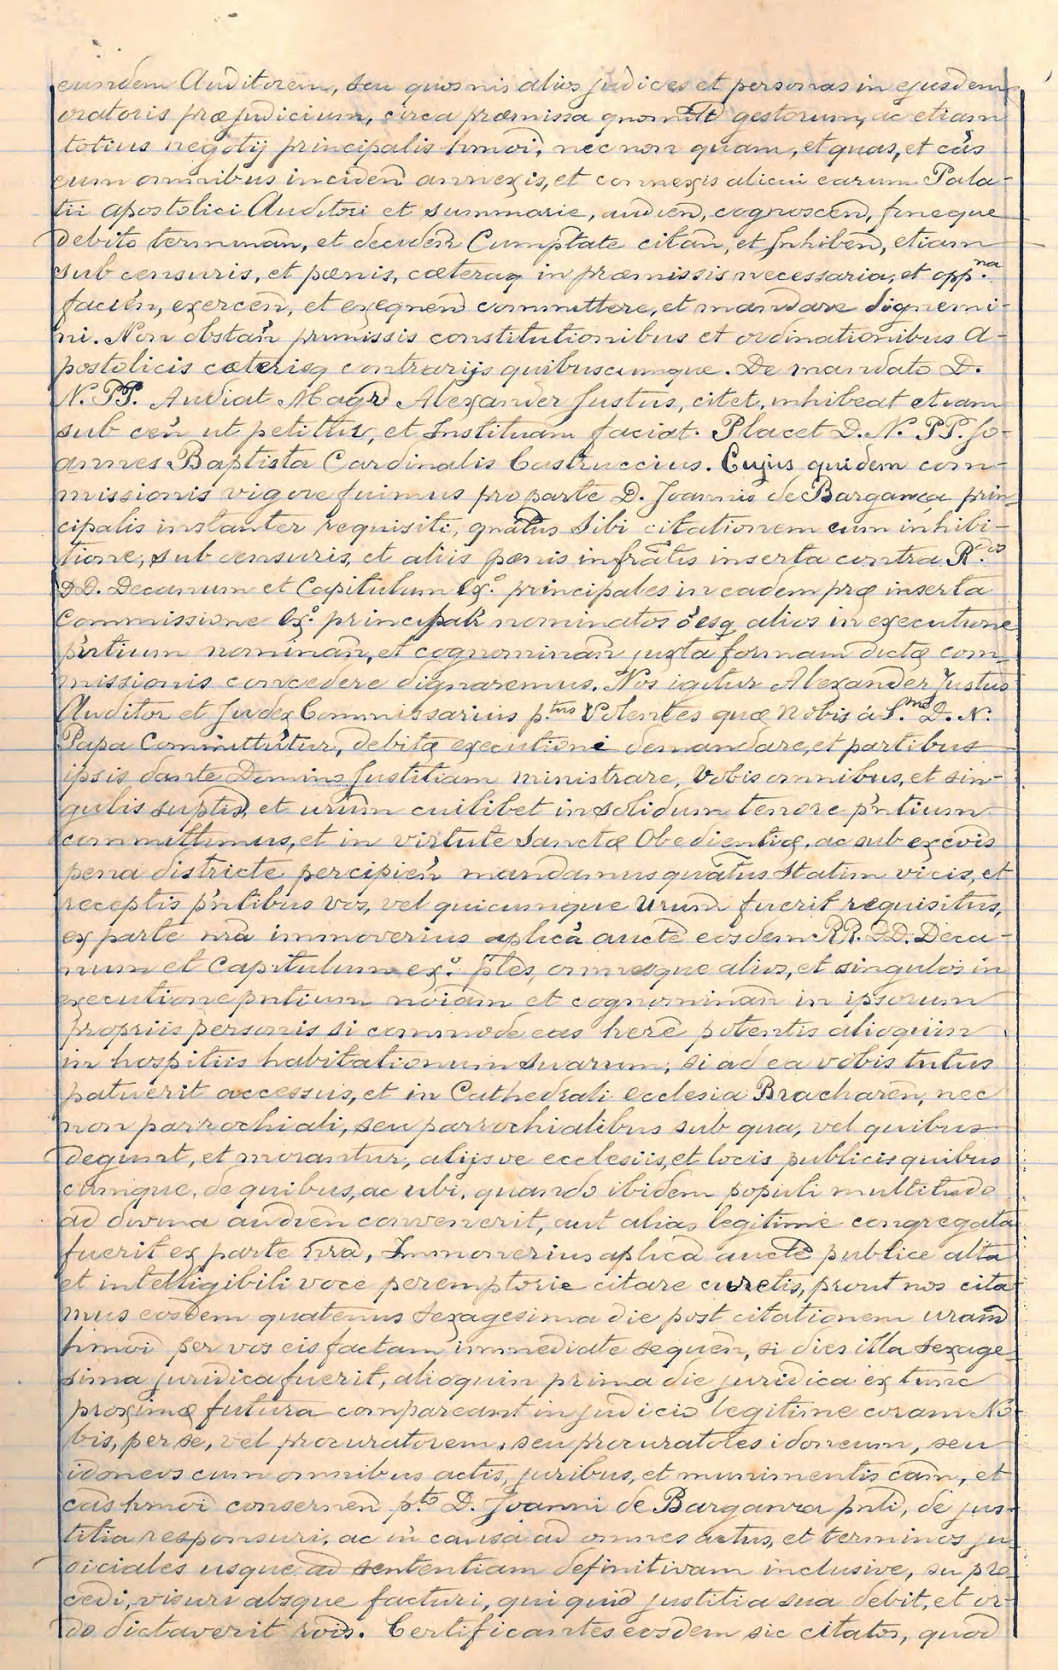 eundem Auditorem, seu quosvis alios judices et personas in ejusdem
oratoris præjudicium, circa præmissa quomlt gestorum, ac etiam
totius negotij principalis hmoi, nec non quam, et quas, et cãs
cum omnibus inciden annexis, et connexis alicui earum Pala-
tii apostolici Auditori et summarie, audien, cognoscen, fineque
debito terminan, et deciden Cumptate citan, et Inhiben, etiam
sub censuris, et pœnis, cæteraq in præmissis necessaria, et opp.na
facien, exercen, et exequen committere, et mandare dignemi-
ni. Non obstan premissis constitutionibus et ordinationibus A-
postolicis cæterisq contrarijs quibuscumque. De mandato D.
N. PP. Audiat Magr Alexander Justus, citet, inhibeat etiam
sub cen ut petittur, et Institiam faciat. Placet D. N. PP. Jo-
annes Baptista Cardinalis Castruccius. Cujus quidem com-
missionis vigore fuimus pro parte D. Joannis de Bargança prin
cipalis instanter requisiti, qnatus sibi citationem cum inhibi-
tione, sub censuris, et aliis pœnis infratis inserta contra R.dos
DD. Decanum et Capitulum ex.o principales in eadem præ inserta
Commissione ex.o principalr nominatos oesq alios in executione
pntium nominan, et cognominan juxta formam dictæ com-
missionis concedere dignaremus. Nos igitur Alexander Justus
Auditor et Judex Commissarius p.tus Volentes quæ Nobis à S.mo D. N.
Papa Committutur, debitæ executioni demandare, et partibus
ipsis dante Domino Justitiam ministrare, Vobis omnibus, et sin-
gulis suptis, et urum cuilibet in solidum tenore pntium
committimus, et in virtute Sanctæ Obedientiæ, ac sub excois
pena districte percipien mandamus quatus statim vicis, et
receptis pntibus vos, vel quicumque Urum fuerit requisitus,
ex parte nra immoverius aplica aucte eosdem RR. DD. Deca-
num et Capitulum ex.o ptes, omnesque alios, et singulos in
executione pntium noiam et cognominan in ipsorum
propriis personis si commode eas here potentis alioquin
in hospitiis habitationum suarum, si ad ea vobis tutus
patuerit accessus, et in Cathedrali ecclesia Bracharen, nec
non parrochiali, seu parrochialibus sub qua, vel quibus
degunt, et morantur, alijsve ecclesiis, et locis publicis quibus
cumque, de quibus, ac ubi, quando ibidem populi multitudo
ad divina audien convenerit, aut alias legitime congregata
fuerit ex parte nra, Immoverius aplica aucte publice alta
et intelligibili voce peremptorie citare curetis, prout nos cita
mus eosdem quatenus sexagesima die post citationem uram
hmoi per vos eis factam immediate sequen, si dies illa sexage
sima juridica fuerit, alioquin prima die juridica ex tunc
proximæ futura compareant in judicio legitime coram No-
bis, per se, vel procuratorem, seu procuratores idoneum, seu
idoneos cum omnibus actis, juribus, et munimentis cam, et
cas hmoi consernen p.to D. Joanni de Barganza pnti, de jus-
titia responsuri, ac in causa ad omnes actus, et terminos ju
diciales usque ad sententiam definitivam inclusive, su pro
cedi, visuri absque facturi, qui quid justitia sua debit, et or-
do dictaverit rois. Certificantes eosdem sic citatos, quod